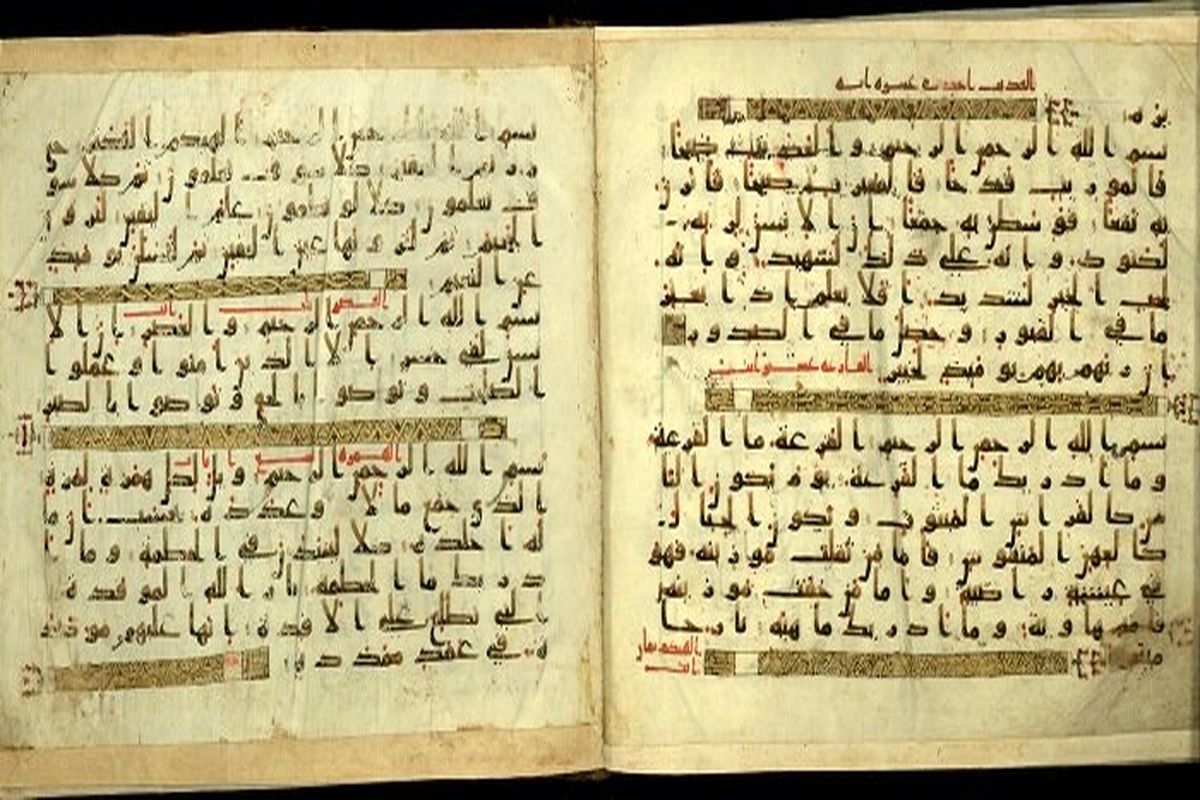 العديت احدى عشره ايه
يره
بسم الله الرحمن الرحيم والعديت ضبحا
فالموريت قدحا فالمغيرت صبحا فاثرن
به نقعا فوسطن به جمعا ان الانسن لربه
لكنود وانه على ذلك لشهيد وانه
لحب الخير لشديد افلا يعلم اذا بعثر
ما في القبور وحصل ما في الصدور
ان ربهم بهم يومئذ لخبير القارعه عشر ايت
بسم الله الرحمن الرحيم القرعة ما القرعة
وما ادريك ما القرعة يوم يكون النا
س كالفراش المبثوث وتكون الجبال
كالعهن المنفوش فاما من ثقلت موزينه فهو
في عيشة راضية واما من خفت موزينه
فامه هاوية وما ادريك ما هيه نار حا
مية
الهيكم ثمان
ايت
بسم الله الرحمن الرحيم الهيكم التكثر حتى
زرتم المقبر كلا سوف تعلمون ثم كلا سو
ف تعلمون كلا لو تعلمون علم اليقين لترون
الجحيم ثم لترونها عين اليقين ثم لتسئلن يومئذ
عن النعيم
العصر ثلث ايت
بسم الله الرحمن الرحيم والعصر ان الا
نسن لفي خسر الا الذين امنوا وعملوا
الصلحت وتواصوا بالحق وتواصوا بالصبر
الهمزه تسع ايات
بسم الله الرحمن الرحيم ويل لكل همزة لمزة
الذي جمع مالا وعدده يحسب ان ما
له اخلده كلا لينبذن في الحطمة وما
ادريك ما الحطمة نار الله الموقدة
التي تطلع على الافدة انها عليهم موصد
ة في عمد ممددة